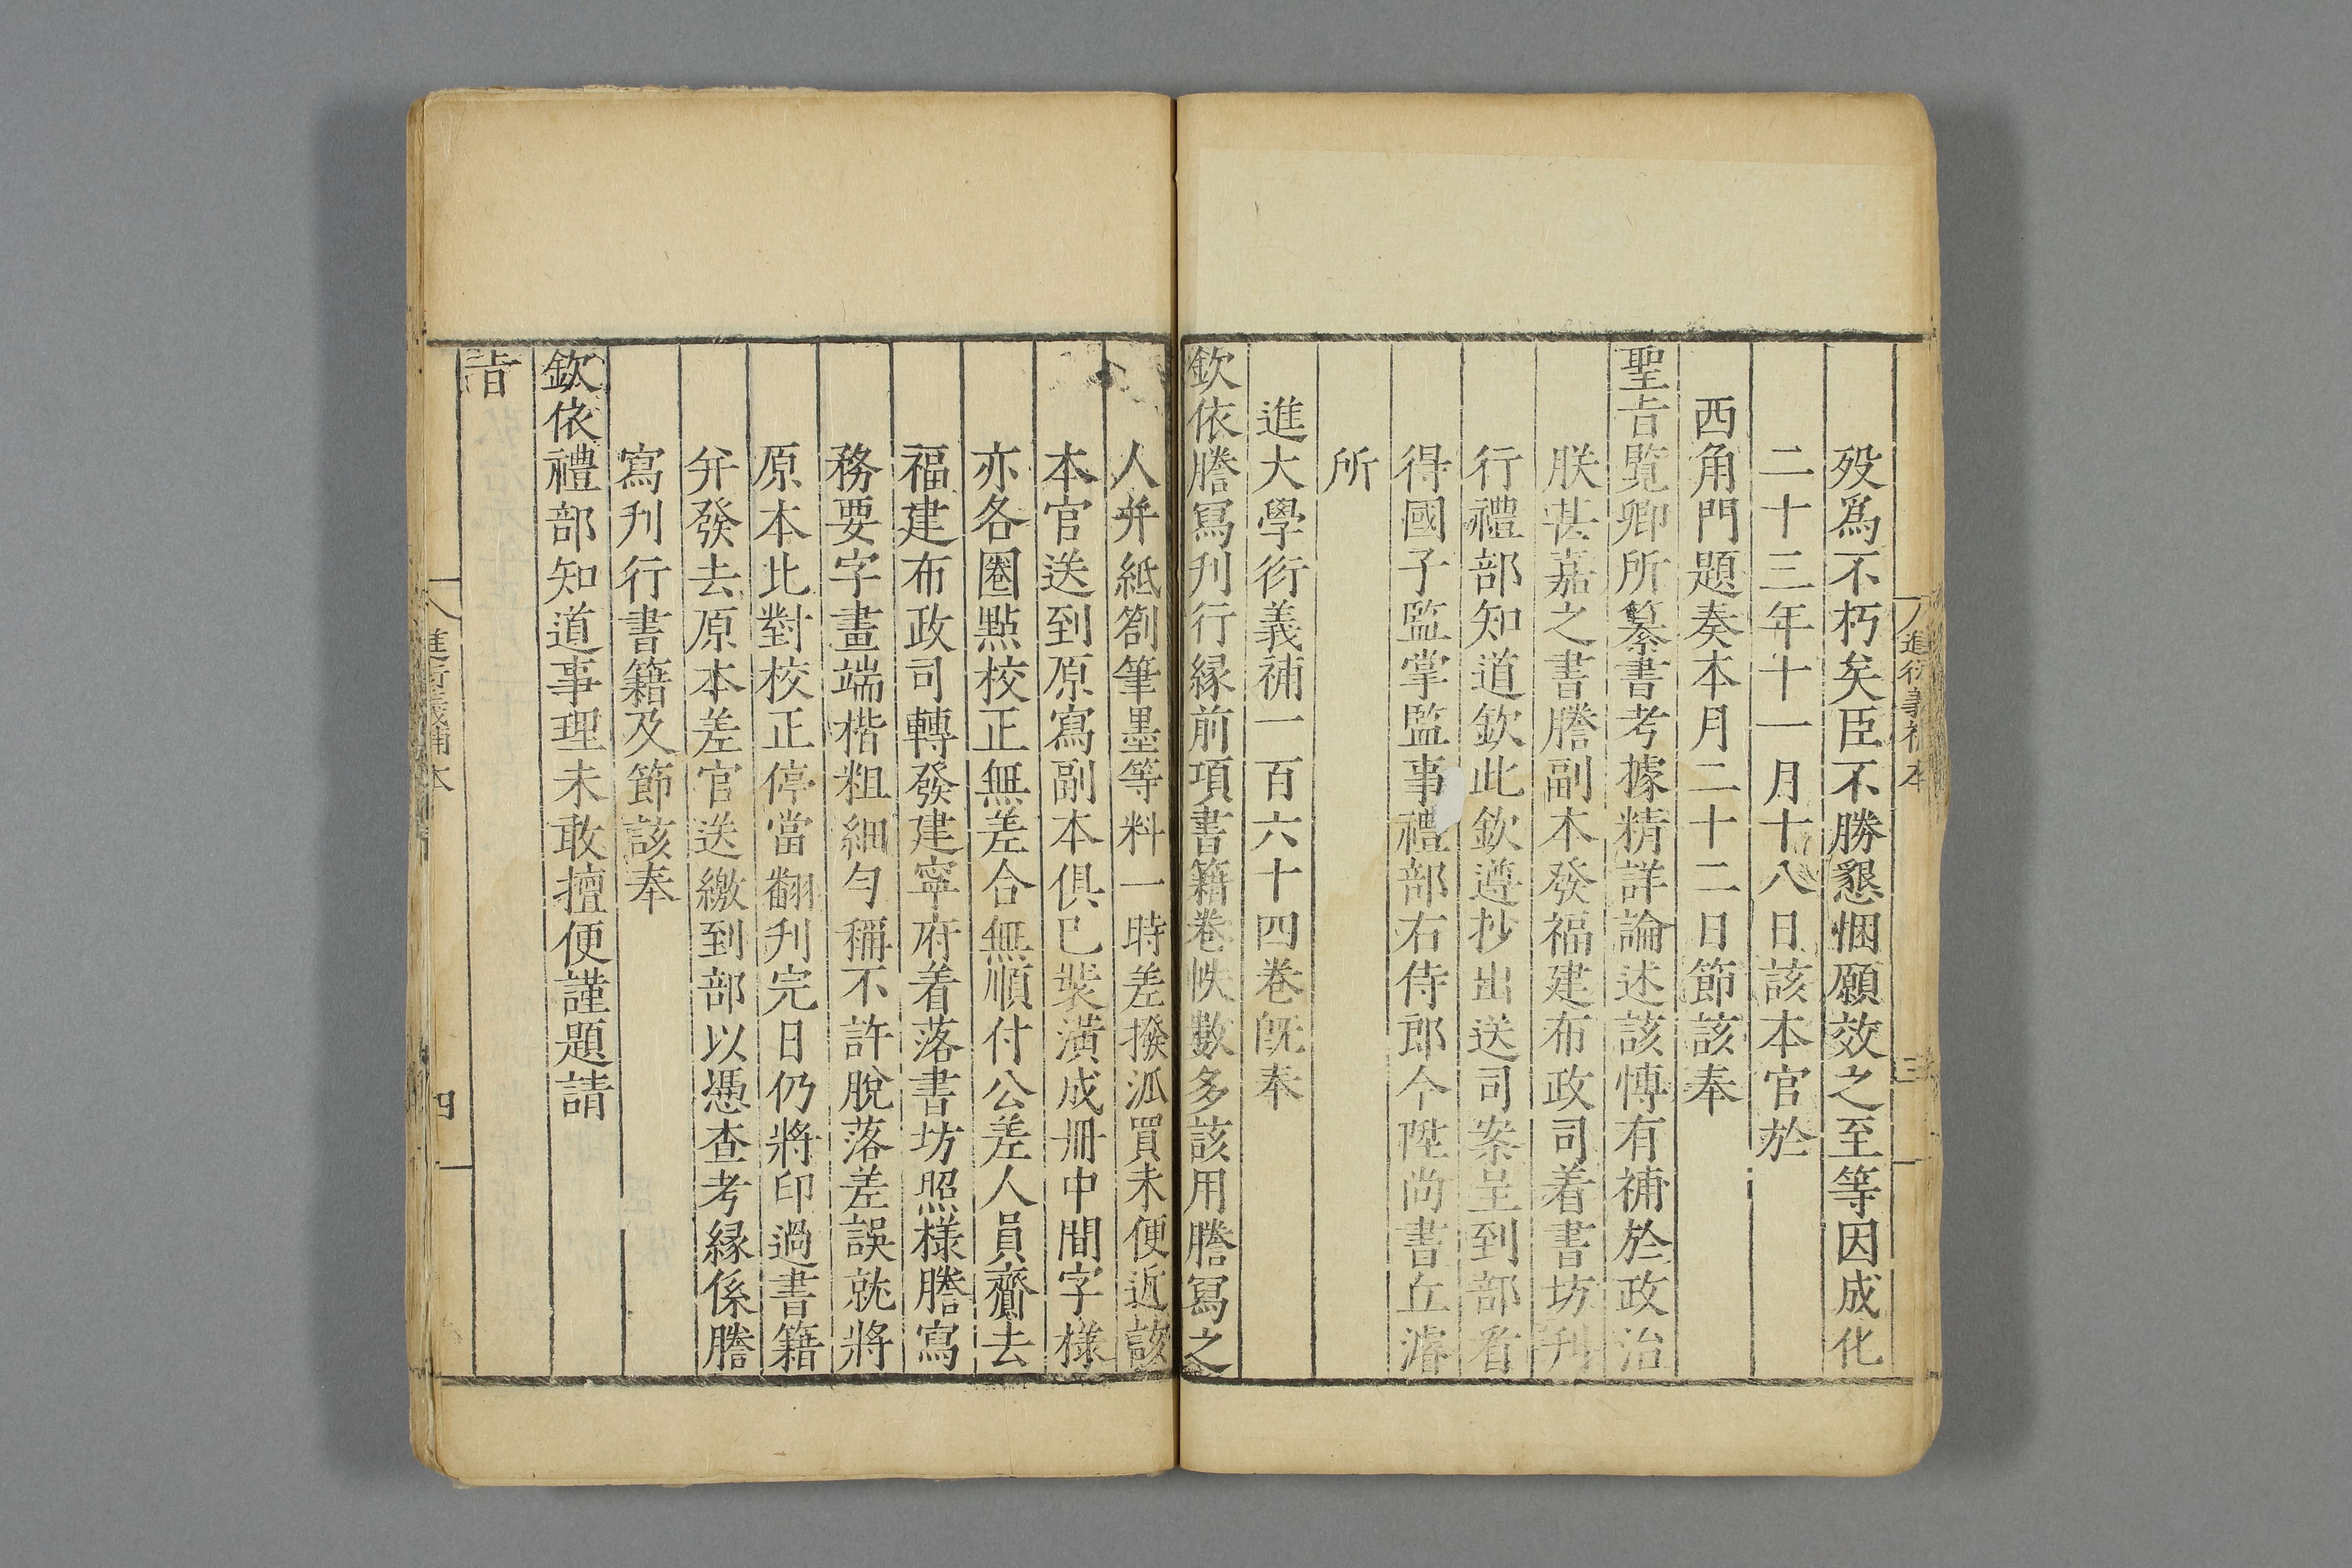 歿爲不朽矣臣不勝懇悃願效之至等因成化
二十三年十一月十八日該本官於
西角門題奏本月二十二日節該奉
聖旨覽卿所纂書考據精詳論述該愽有補於政治
朕甚嘉之書謄副本發福建布政司着書坊刋
行禮部知道欽此欽遵抄出送司案呈到部看
得國子監掌監事禮部右侍郎今陞尚書丘濬
所
進大學衍義補一百六十四卷旣奉
欽依謄寫刋行縁前項書籍卷帙數多該用謄寫之
人并紙劄筆墨等料一時差撥派買未便近該
本官送到原寫副本俱已裝潢成冊中間字樣
亦各圈點校正無差合無順付公差人員齎去
福建布政司轉發建寧府着落書坊照樣謄寫
務要字畫端楷粗細勻稱不許脫落差誤就將
原本比對校正停當翻刋完日仍將印過書籍
并發去原本差官送繳到部以憑查考縁係謄
寫刋行書籍及節該奉
欽依禮部知道事理未敢擅便謹題請
旨
進衍義補本 三
進衍義補本 四